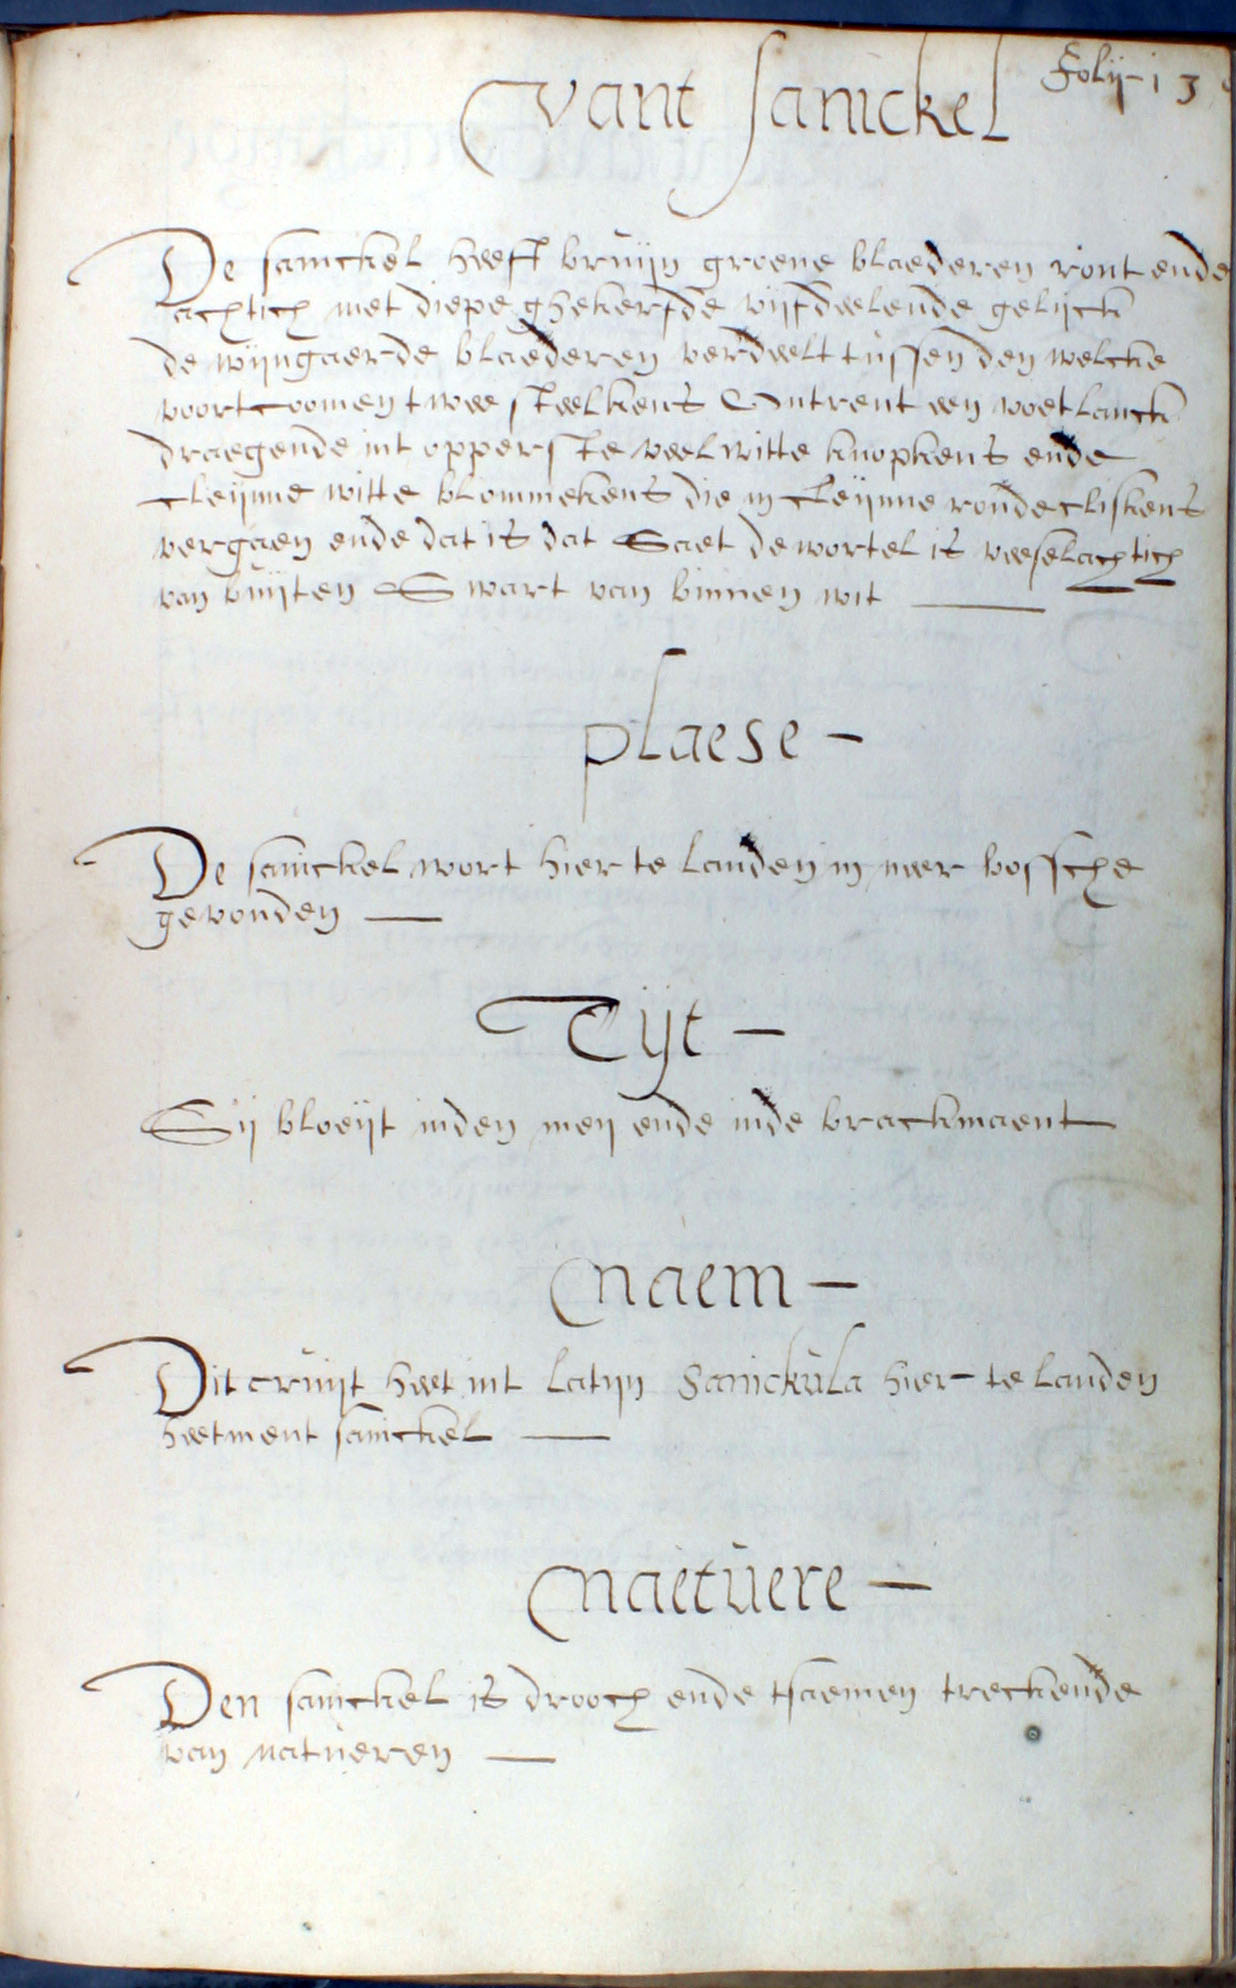 Folij-13
vant sanickel
De sanickel heeft bruijn groene blaederen ront ende
achtich met diepe ghekerfde vijfdeelende gelijck
de wijngaerde blaederen verdeelt tussen den welcke
voortcoomen twee steelkens Ontrent een voet lanck
draegende int opperste veel witte knopkens ende
cleijnne witte blommekens die in cleijnne ronde cliskens
vergaen ende dat is dat Saet de wortel is veeselachtich
van buijten Swart van binnen wit
plaese -
De sanickel wort hier te landen in meer bossche
gevonden
Tijt -
Sij bloeijt inden meij ende inde brackmaent
naem -
Dit cruijt heet int latijn Sanickula hier te landen
heetment sanickel
naetuere -
Den sanickel is drooch ende tsaemen treckende
van natueren